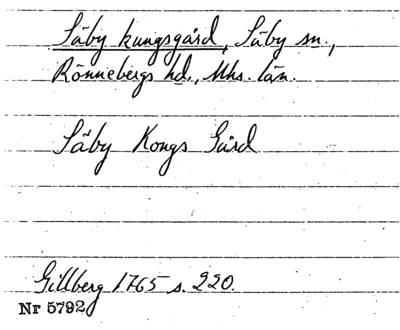 Säby kungsgård, Säby sn.,
Rönnebergs hd., Mhs. län.
Säby Kongs Gård
Gillberg 1765 s. 220.
Nr 5792